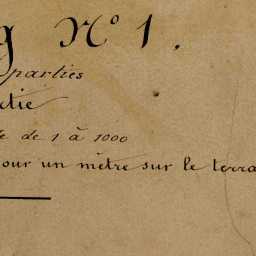 g N° 1.
parties
rtie
e de 1 à 1000
our un mètre sur le terra